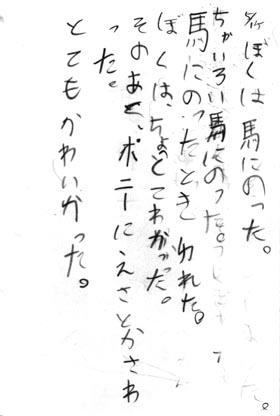 ぼくは馬にのった。
ちゃいろい馬にのった。
馬にのったときゆれた。
ぼくは、ちょとてわかった。
そのあと、ポニーにえさとかさわ
った。
とてもかわいかった。